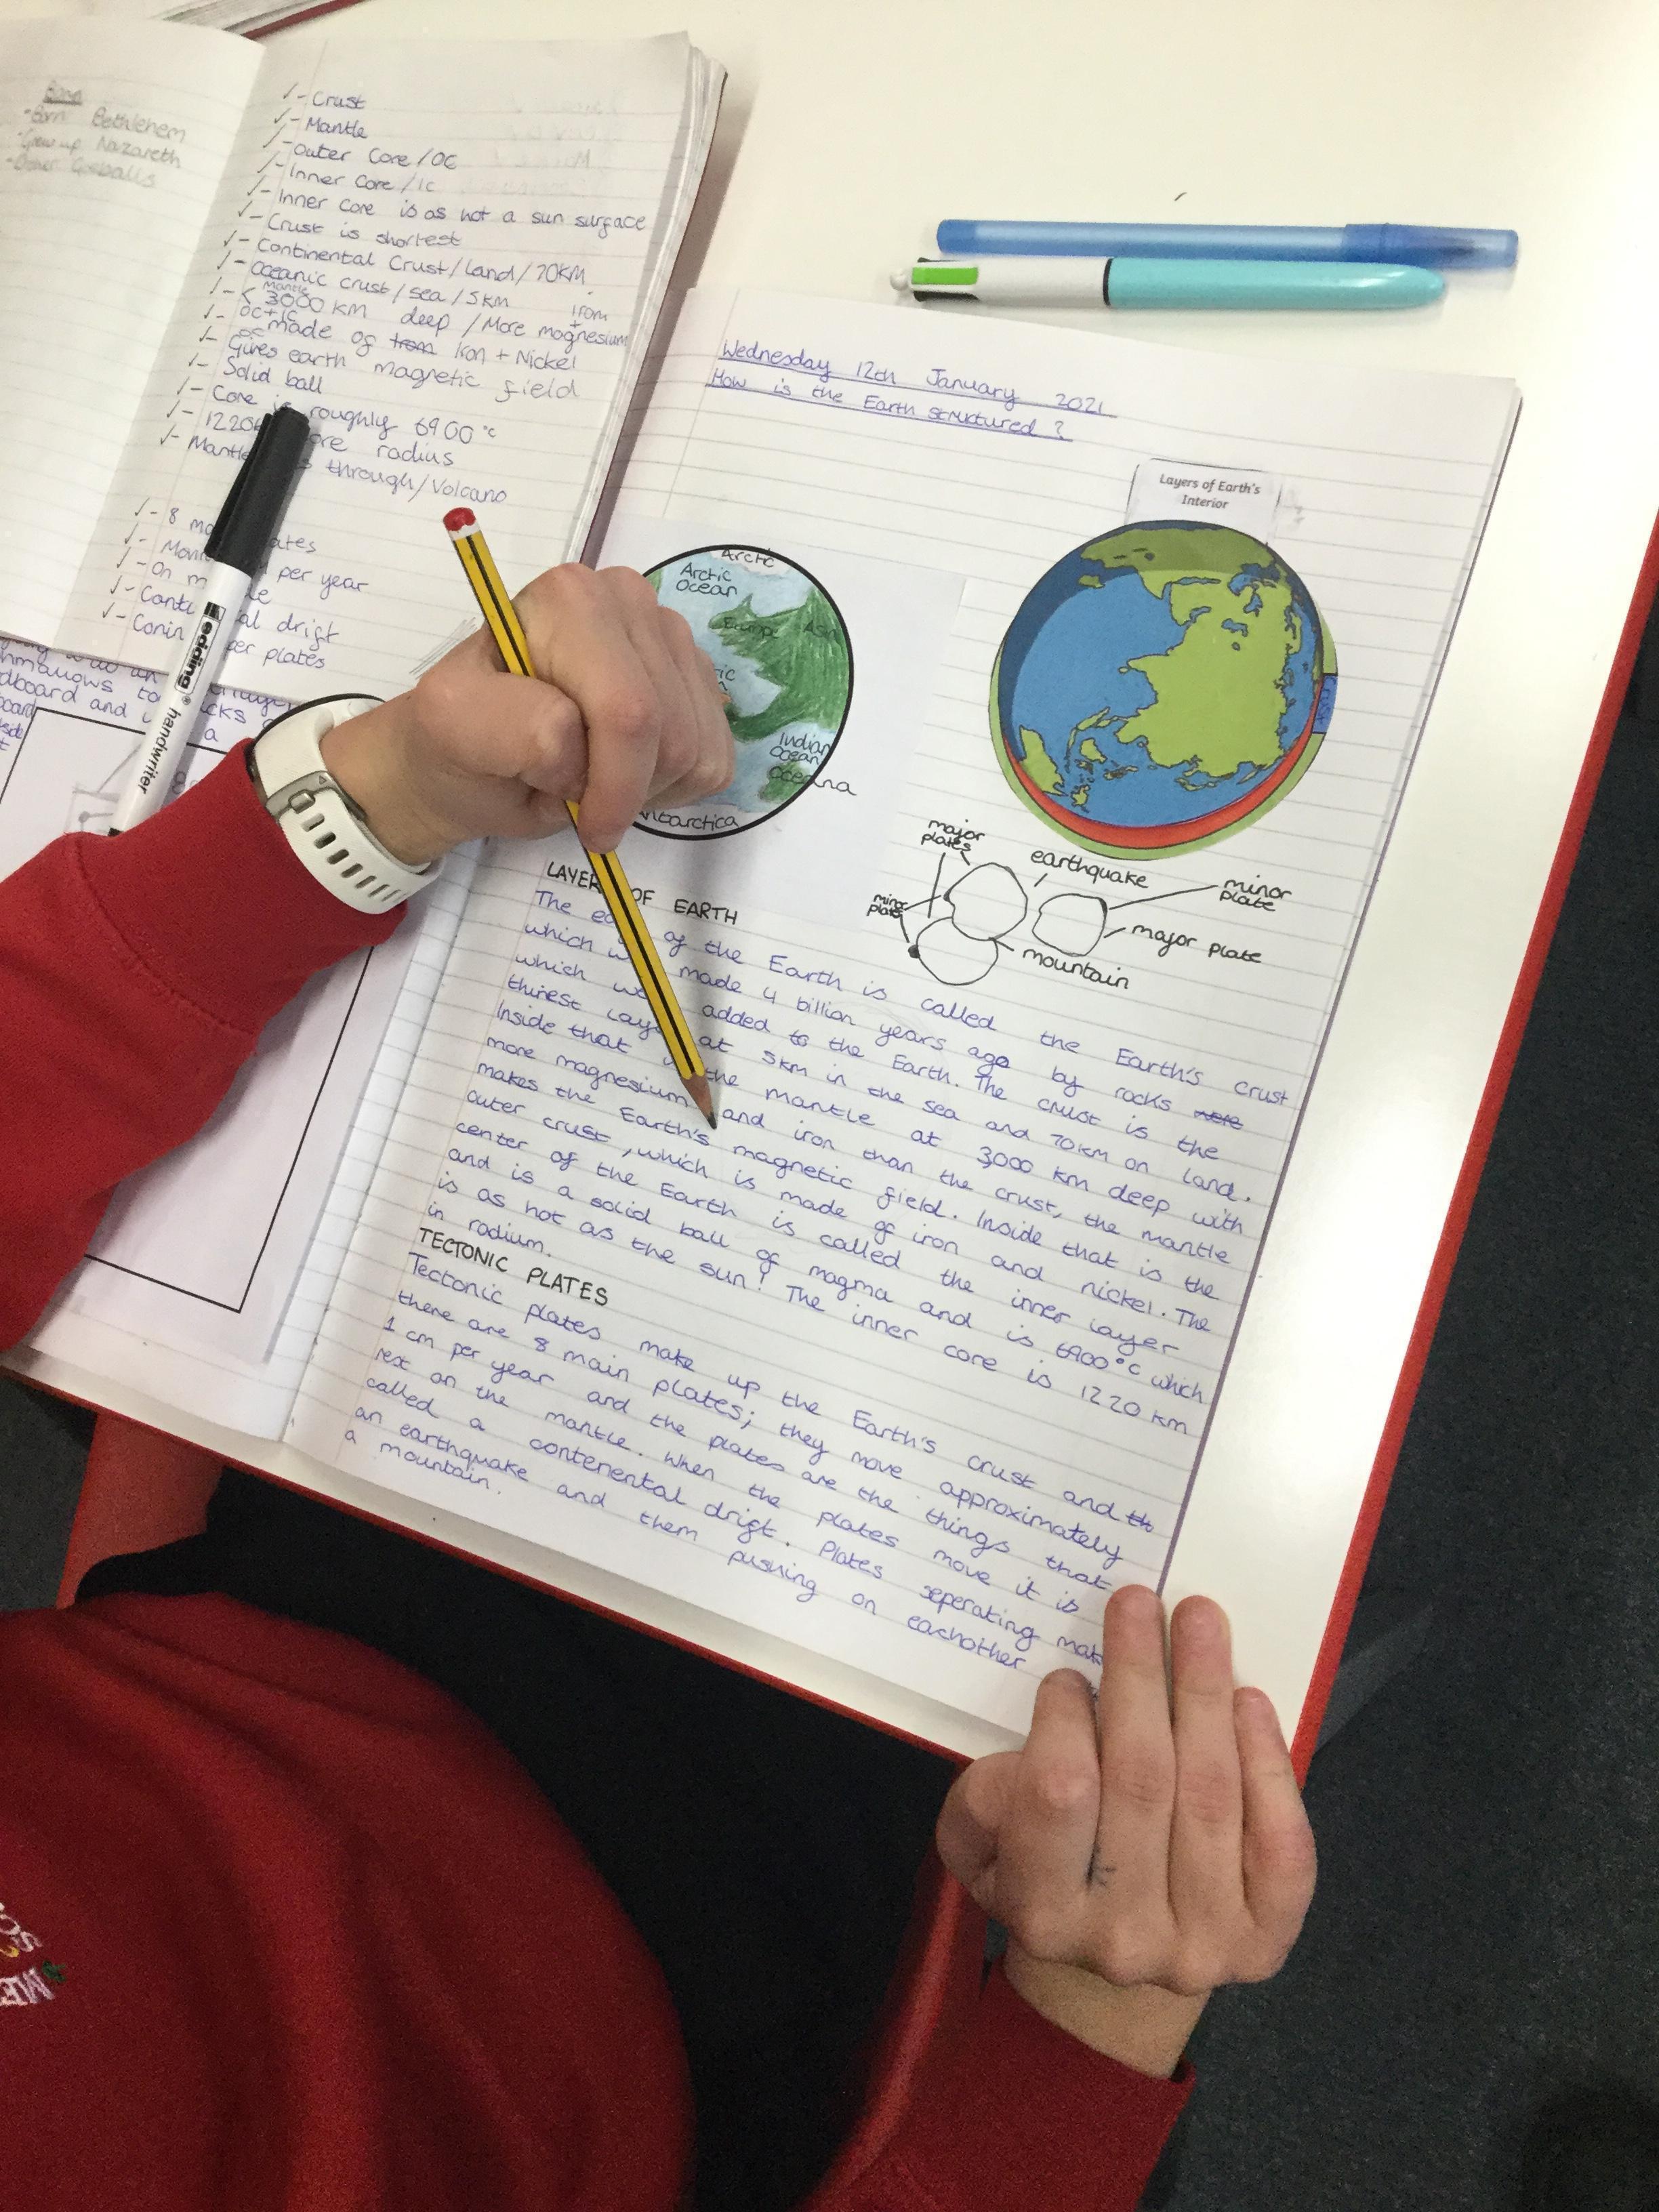 Born
-Born Bethlehem
-Grew up Nazareth
✓- Crust
✓- Mantle
✓- Outer Core / OC
✓- Inner Core / IC
✓- Inner Core is as hot a sun surface
✓- Crust is shortest
✓- Continental Crust / land / 70KM
✓- Oceanic crust / sea / 5KM
✓- < Mantle 3000 KM deep / More magnesium + iron
✓- OC + IC made of from Iron + Nickel
✓- OC Gives earth magnetic field
✓- Solid ball
✓- Core is roughly 6900 °c
✓- 1220 core radius
✓- Mantle through / Volcano
✓- 8 plates
✓- per year
✓- On
✓- drift
✓- plates
edding handwriter
Wednesday 12th January 2021
How is the Earth structured?
Layers of Earth's
Interior
Arctic
Arctic
Ocean
Europe
Asia
Indian
Ocean
Oceana
Antarctica
major
plates
earthquake
minor
plate
minor
plates
major plate
mountain
LAYERS OF EARTH
The of the Earth is called the Earth's crust
which made 4 billion years ago by rocks were
which were added to the Earth. The crust is the
thinest layer at 5km in the sea and 70km on land.
Inside that is the mantle at 3,000 km deep with
more magnesium and iron than the crust, the mantle
makes the Earth's magnetic field. Inside that is the
outer crust, which is made of iron and nickel. The
center of the Earth is called the inner layer
and is a solid ball of magma and is 6900°c which
is as hot as the sun! The inner core is 1220 km
in radium.
TECTONIC PLATES
Tectonic plates make up the Earth's crust and th
there are 8 main plates; they move approximately
1 cm per year and the plates are the things that
rest on the mantle. When the plates move it is
called a contenental drift. Plates seperating
an earthquake and them pushing on eachother
a mountain.